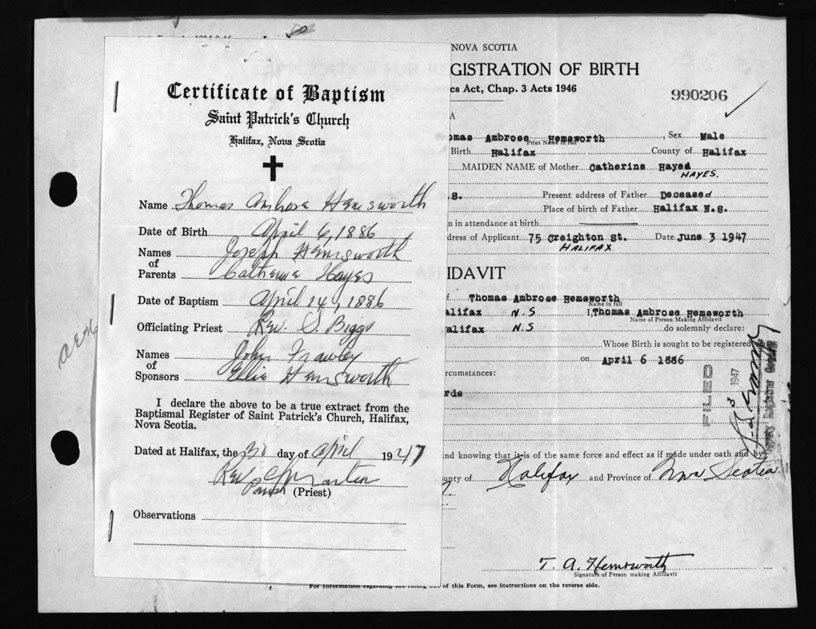 Certificate of Baptism
Saint Patrick's Church
Halifax, Nova Scotia
Name Thomas Ambrose Hemsworth
Date of Birth April 6, 1886
Names of Parents Joseph Hemsworth
Catherine Hayes
Date of Baptism April 14, 1886
Officiating Priest Rev. Biggs
Names of Sponsors John Frawley
Ellie Hemsworth
I declare the above to be a true extract from the
Baptismal Register of Saint Patrick's Church, Halifax,
Nova Scotia.
Dated at Halifax, the 30 day of April 1947
Rev. Martin
(Priest)
Observations
NOVA SCOTIA
GISTRATION OF BIRTH
cs Act, Chap. 3 Acts 1946
990206
omas Ambrose Hemsworth, Sex Male
Print Name in full
Birth Halifax County of Halifax
MAIDEN NAME of Mother Catherine Hayed
HAYES.
S. Present address of Father Deceased
Place of birth of Father Halifax N.S.
n in attendance at birth
dress of Applicant 75 Creighton St. Date June 3 1947
HALIFAX
FIDAVIT
f Thomas Ambrose Hemsworth
Name in full
alifax N.S I, Thomas Ambrose Hemsworth
Name of Person Making Affidavit
alifax N.S do solemnly declare:
Whose Birth is sought to be registered
on April 6 1886
circumstances:
rds
FILED
3 1947
and knowing that it is of the same force and effect as if made under oath and by
unty of Halifax and Province of Nova Scotia
T. A. Hemsworth
Signature of Person making Affidavit
For Information regarding the filling out of this Form, see instructions on the reverse side.